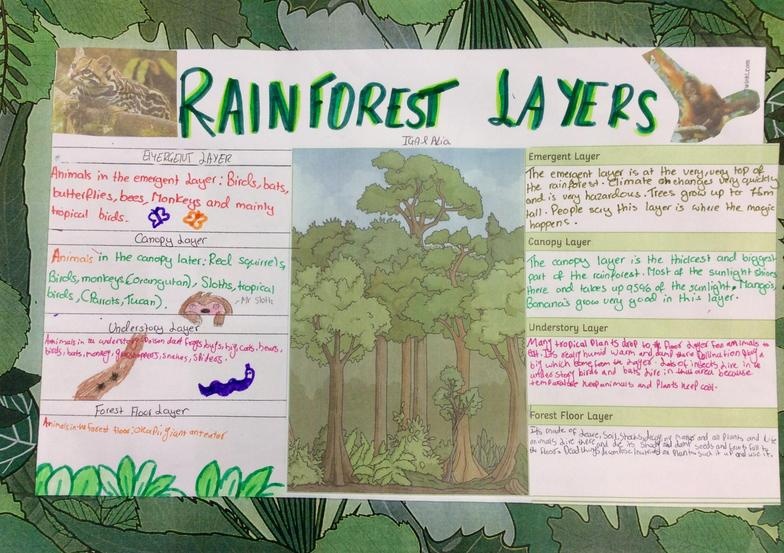 RAINFOREST LAYERS
EMERGENT LAYER
Animals in the emergent layer: Birds, bats,
butterflies, bees, Monkeys and mainly
tropical birds.
Canopy Layer
Animals in the canopy later: Red squirrels,
Birds, monkeys (orangutan), Sloths, tropical
birds, (Parrots, Tucan).
Mr Sloth
Understory Layer
Animals in understory: Poison dart frogs, bugs, big cats, bears,
birds, bats, monkey, grasshoppers, snakes, Sliders.
Forest Floor Layer
Animals in the forest floor: okapi, giant anteater
Emergent Layer
The emergent layer is at the very, very top of
the rainforest. Climate changes very quickly
and is very hazardous. Trees grow up to 76m
tall. People say this layer is where the magic
happens.
Canopy Layer
The canopy layer is the thickest and biggest
part of the rainforest. Most of the sunlight shines
there and takes up 95% of the sunlight. Mango's,
Banana's grow very good in this layer.
Understory Layer
Many tropical plants drop to floor layer for animals to
eat. Its really humid warm and damp there
big which layer. Lots of insects live in
understory birds and bats live in this area because
keep animals and plants keep cool.
Forest Floor Layer
Its made of and all plants and
animals live there and die its shady and damp seeds and fruits fall to
the floor. Dead things decompose plants suck it up and use it.